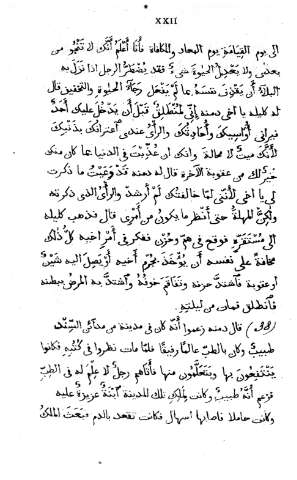 XXII
الى يوم القيامة يوم المعاد والمكافاة فأنا أعلم أنّك لا تنجو من
بعدى ولا يعدل الحيوة شىء فقد يضطر الرجل اذا نزل به
البلاء أن يقذف نفسه بما لم يفعل رجاء الحيوة والتخفيف قال
له كليله يا اخى دمنه إنى منطلق قبل أن يدخل عليك أحد
فيرانى أواسيك وأحاورك والرأى عندى اعترافك بذنبك
لأنك ميت لا محالة وانك ان عذّبت فى الدنيا بما كان منك
خير لك من عقوبة الآخرة قال له دمنه قد وعيت ما ذكرت
لى يا اخى لأننى لمّا خالفتك لم أرشد والرأى الذى ذكرته
ولكن المهلة حتى أنظر ما يكون من أمرى قال فذهب كليله
الى مستقره فوقع فى هم وحزن ففكر فى أمر اخيه كل ذلك
مخافة على نفسه أن يؤخذ بجرم أخيه أو يصل اليه شين
أو عقوبة فاشتد حزنه وتفاقم خوفه واشتد به المرض ببطنه
فانطلق فمات من ليلته
قال دمنه زعموا أنّه كان فى مدينة من مدائن السند
طبيب وكان بالطب عالما رفيقا فلما مات نظروا فى كتبه فكانوا
ينتفعون بها ويتعلمون منها فأتاهم رجل لا علم له فى الطب
فزعم أنّه طبيب وكانت لملك تلك المدينة ابنة عزيزة عليه
وكانت حاملا فاصابها أسهال فكانت تقعد بالدم فبعث الملك